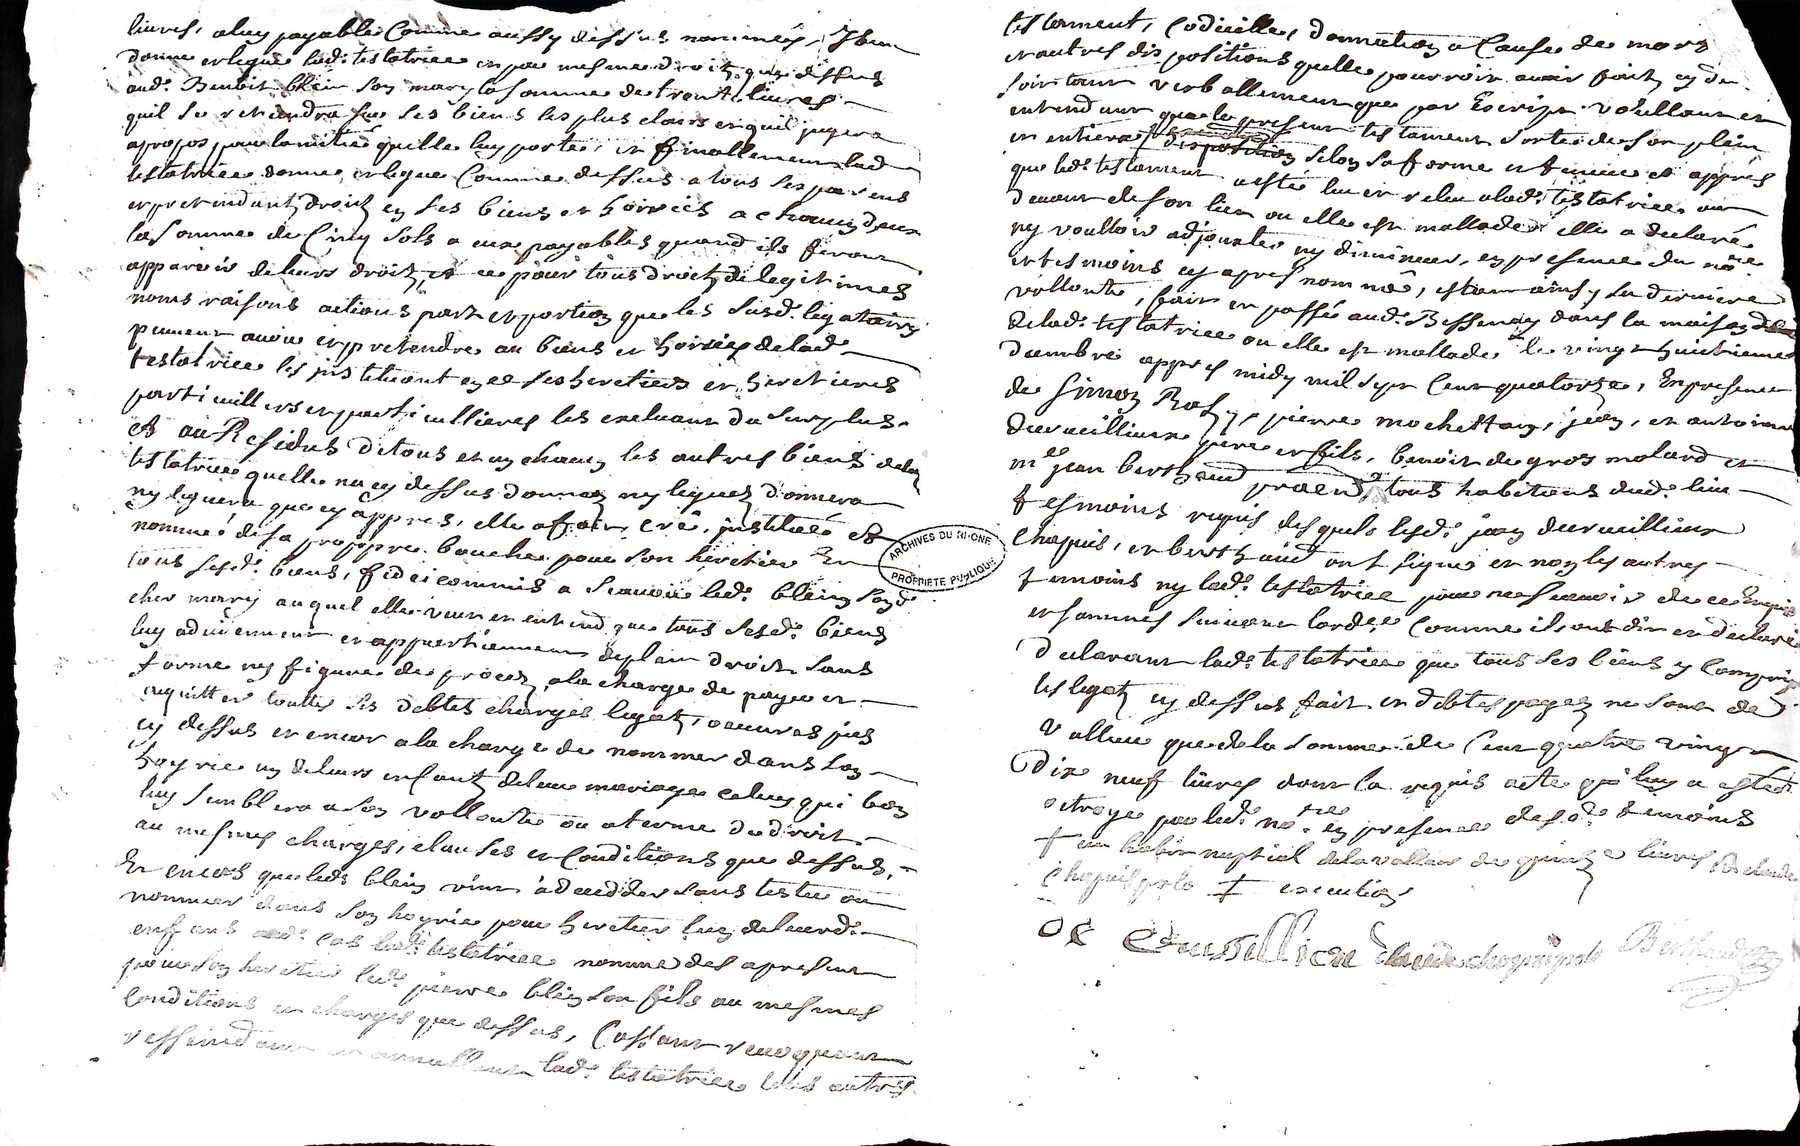 livres, aluy payable Comme aussy dessus nommés, Item
donne et legue lad.e testatrice et par mesme droit que dessus
aud.t Benoit blein son mary la somme de trente livres
quil se retiendra sur ses biens les plus clairs et quil jugera
apropos pour lamitié quelle luy porte, et finallement lad
testatrice donne et legue Comme dessus a tous ses parens
et pretendantz droitz en ses biens et hoiries a chacun deux
la somme de Cinq sols a eux payables quand ils feront
apparoir de leurs droitz, et ce pour tous droitz de legitimes
noms raisons actions partz et portion que les susd.s legataires
peuvent avoir et pretendre au biens et hoiries de lad.e
testatrice les instituant en ce ses heretiers et heretieres
particulliers et particullieres les excluant du surplus
Et au Residus de tous et un chacun les autres biens de lad
testatrice quelle na cy dessus donnez ny leguez donnera
ny leguera que cy appres, elle a fait, créé, institué et
nommé de sa proppre bouche pour son heretier En
tous sesd.s biens, fideicommis a scavoir led.t blein sond.t
cher mary auquel elle veut et entend que tous sesd.s biens
luy adviennent et appartiennent de plain droit sans
forme ny figure de procez, a la charge de payer et
acquitter touttes ses debtes charges legatz, oeuvres pies
cy dessus et encor a la charge de nommer dans son
hoyrie un de leurs enfantz de leur mariage celuy qui bon
luy semblera a son vollonté ou a terme du droit
au mesmes charges, clauses et Conditions que dessus,
Et en cas que led.t blein vint a decedder sans tester ou
nommer dans son hoyrie pour heretier lun de leursd.s
enfans aud.t cas lad.e testatrice nomme des apresent
pour son heretier led.t pierre blein son fils au mesmes
Conditions et charges que dessus, Cassant revoquant
et annullant lad.e testatrice tous autres
ARCHIVES DU RHONE
PROPRIETE PUBLIQUE
testament, Codicille, donnation a Cause de mort
et autres dispositions quelle pourroit avoir fait cy de
soit tant verballement que par Escript. voullant et
entendant que le present testament sorte de son plein
et entiere disposition selon sa forme et teneur et appres
que led.t testament a esté lu et relu a lad.e testatrice au
devant de son lieu ou elle est mallade elle a declaré
ny voulloir adjouster ny diminuer, en presence du no.re
et tesmoins cy apres nommés, estant ainsy sa derniere
vollonté, fait et passé aud.t Bessenay dans la maison
de lad.e testatrice ou elle est mallade le vingt huictieme
appres midy mil sept Cent quatorze, En presence
de Simon Rosy, pierre mochettan, jean, et antoine
Durveillieux pere et fils, benoit de gros molard et
m.e jean berthaud tous habitans dud.t lieu
tesmoins requis desquels lesd.s jean durveillieux
chapuis, et berthaud ont signé et non les autres
temoins ny lad.e testatrice pour ne scavoir de ce Enquis
et sommés suivant lord.ce Comme ils ont dit et declaré
Declarant lad.e testatrice que tous ses biens y Compris
les legatz cy dessus fait et debtes payez ne sont de
valleur que de la somme de Cent quatre vingt
Dix neuf livres dont la requis acte qui luy a esté
octroyé par led.t no.re en presence desd.s temoins
+ un habit nuptial de la valleur de quinze livres
chapuis + execution
Durveillieu Claude chapuis Berthaud